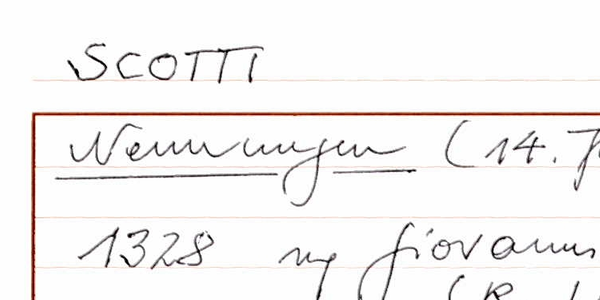 SCOTTI
Nennungen (14. J
1328 Giovanni